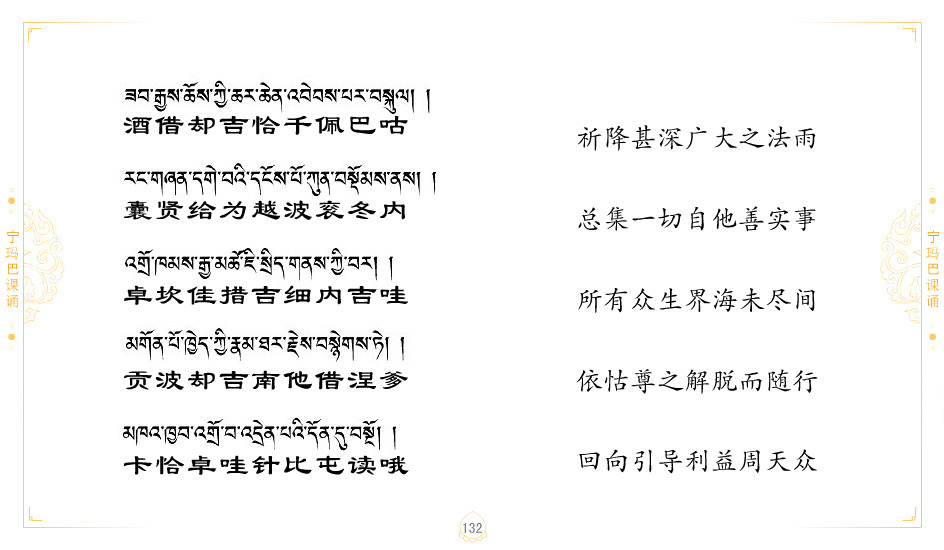 ཟབ་རྒྱས་ཆོས་ཀྱི་ཆར་ཆེན་འབེབས་པར་བསྐུལ། །
酒借却吉恰千佩巴咕
རང་གཞན་དགེ་བའི་དངོས་པོ་ཀུན་བསྡོམས་ནས། །
囊贤给为越波衮冬内
འགྲོ་ཁམས་རྒྱ་མཚོ་ཇི་སྲིད་གནས་ཀྱི་བར། །
卓坎佳措吉细内吉哇
མགོན་པོ་ཁྱེད་ཀྱི་རྣམ་ཐར་རྗེས་བསྙེགས་ཏེ། །
贡波却吉南他借涅爹
མཁའ་ཁྱབ་འགྲོ་བ་འདྲེན་པའི་དོན་དུ་བསྔོ། །
卡恰卓哇针比屯读哦
祈降甚深广大之法雨
总集一切自他善实事
所有众生界海未尽间
依怙尊之解脱而随行
回向引导利益周天众
宁玛巴课诵
宁玛巴课诵
132